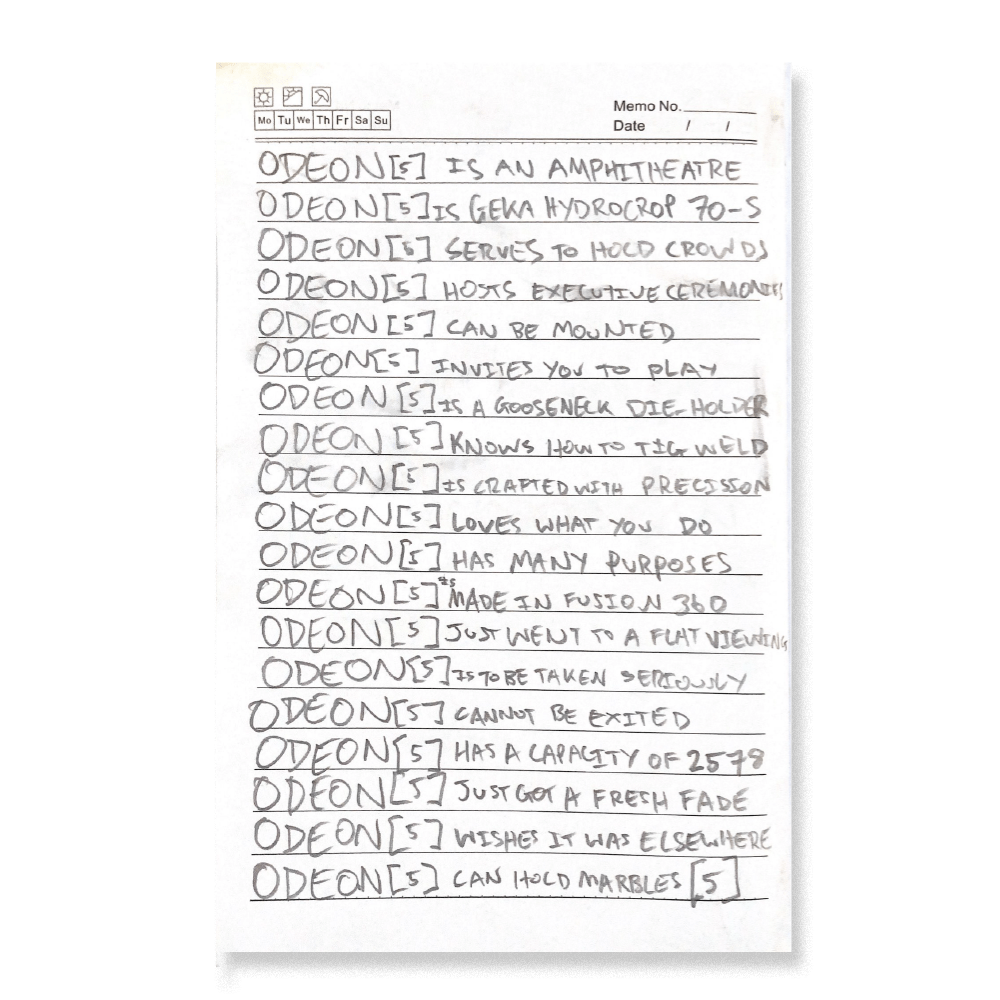 Mo Tu We Th Fr Sa Su
Memo No.
Date / /
ODEON[5] IS AN AMPHITHEATRE
ODEON[5] IS GEKA HYDROCROP 70-S
ODEON[5] SERVES TO HOLD CROWDS
ODEON[5] HOSTS EXECUTIVE CEREMONIES
ODEON[5] CAN BE MOUNTED
ODEON[5] INVITES YOU TO PLAY
ODEON[5] IS A GOOSENECK DIE-HOLDER
ODEON[5] KNOWS HOW TO TIG WELD
ODEON[5] IS CRAFTED WITH PRECISSON
ODEON[5] LOVES WHAT YOU DO
ODEON[5] HAS MANY PURPOSES
ODEON[5] IS MADE IN FUSION 360
ODEON[5] JUST WENT TO A FLAT VIEWING
ODEON[5] IS TO BE TAKEN SERIOUSLY
ODEON[5] CANNOT BE EXITED
ODEON[5] HAS A CAPACITY OF 2578
ODEON[5] JUST GOT A FRESH FADE
ODEON[5] WISHES IT WAS ELSEWHERE
ODEON[5] CAN HOLD MARBLES [5]